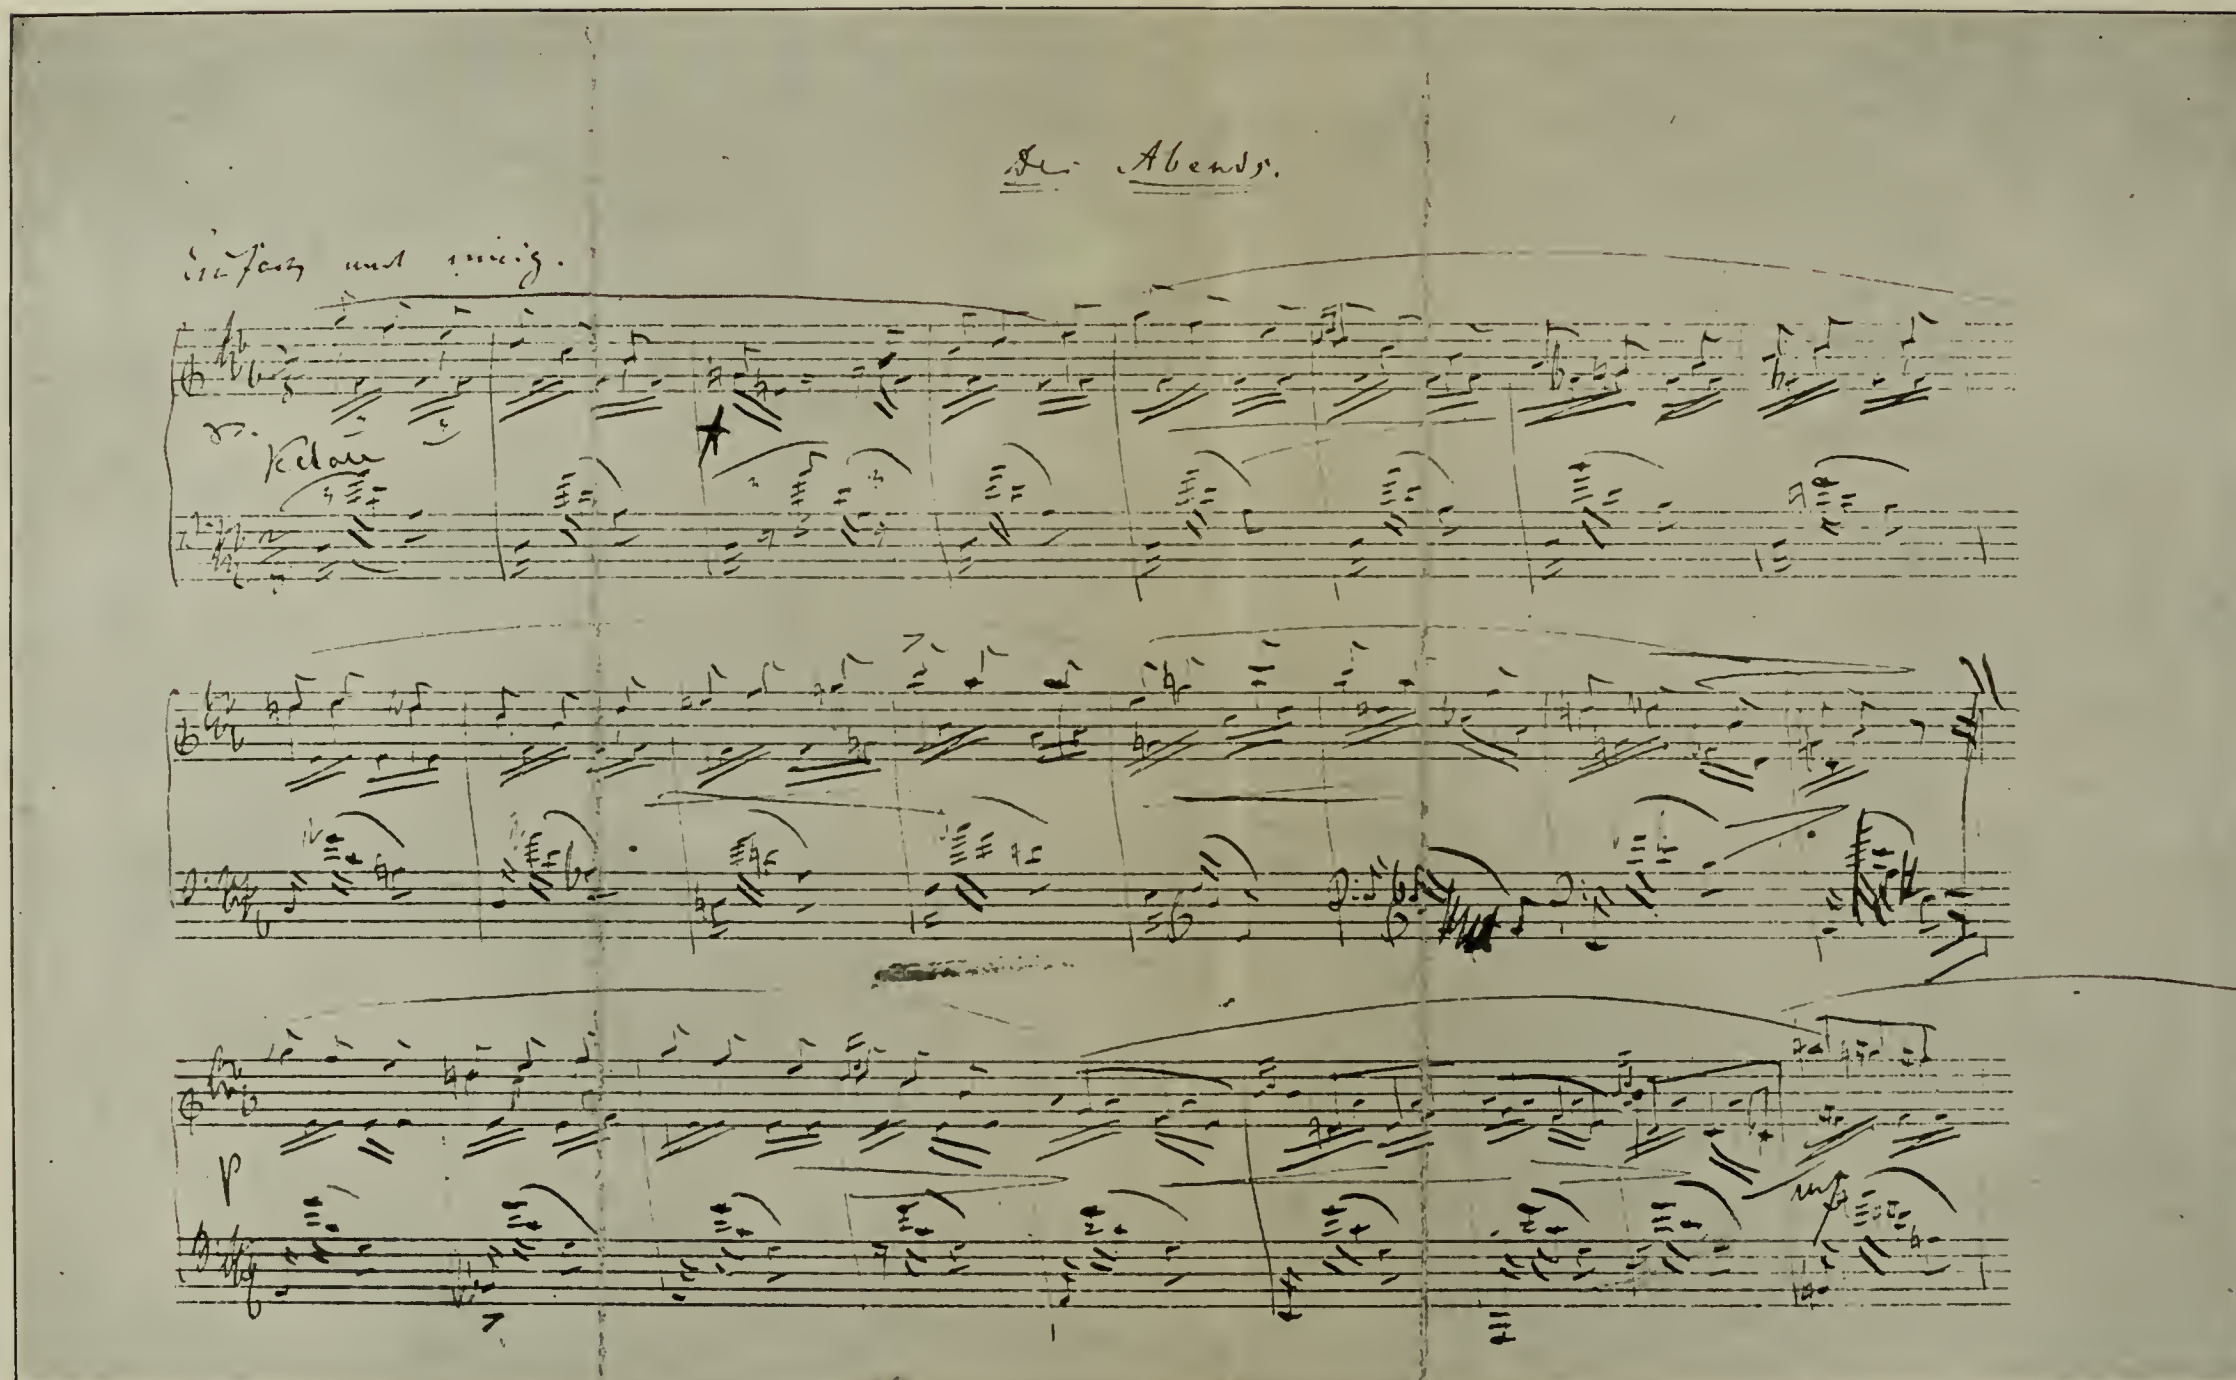 Des Abends.
Einfach und innig.
Pedal
p
mf